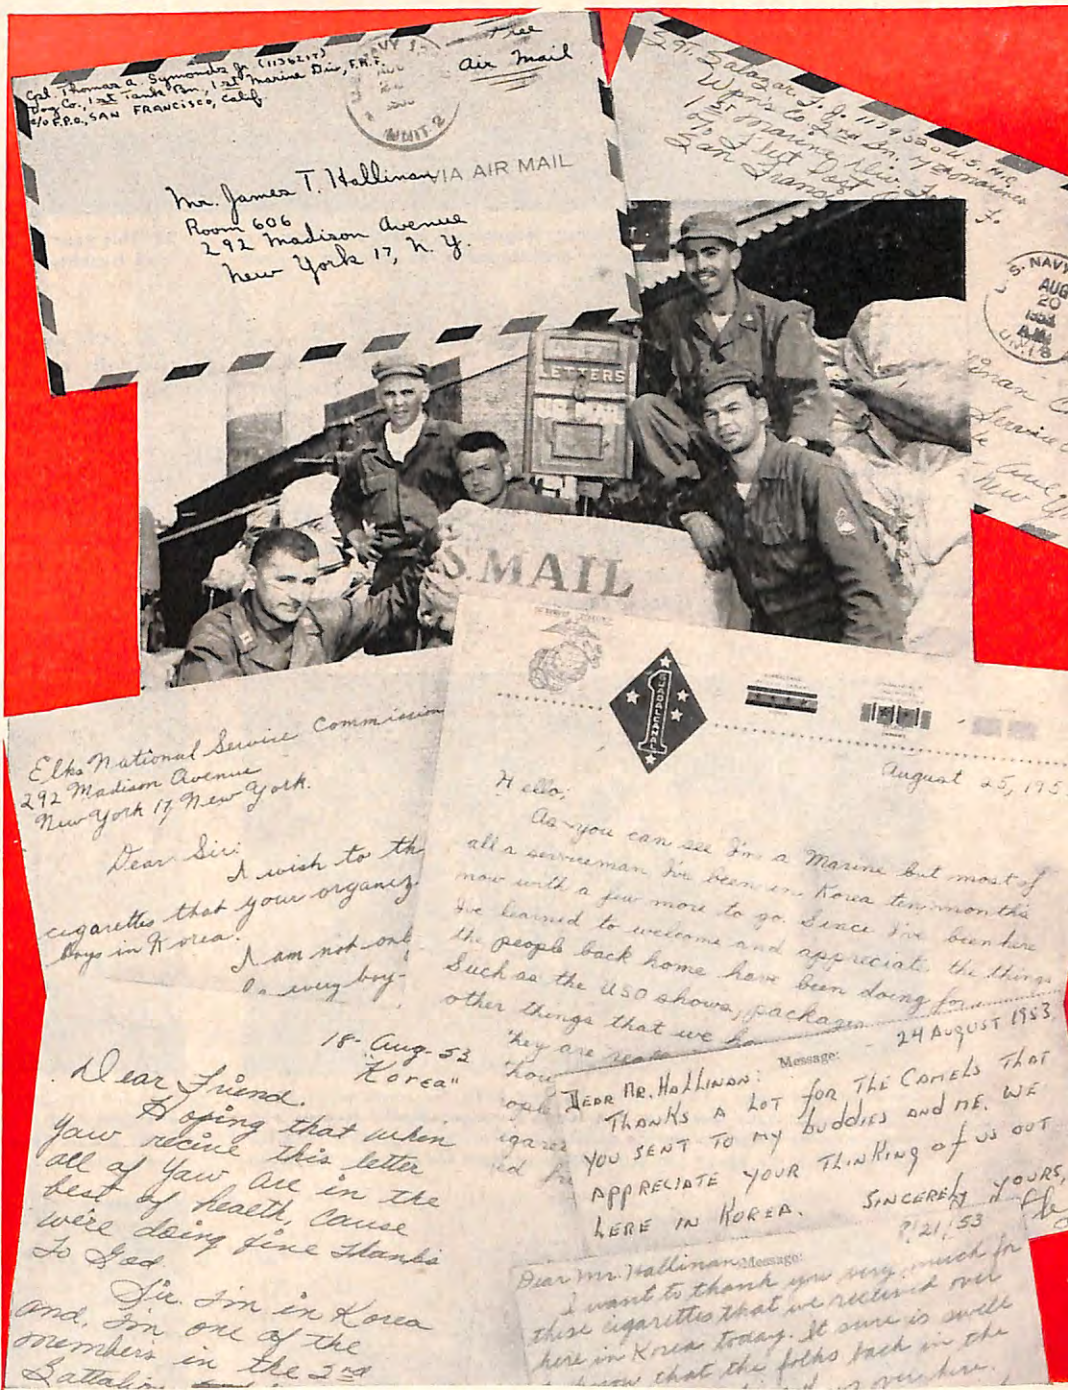 Cpl. Thomas A. Symonds Jr. (1136217)
Dog Co., 1st Tank Bn., 1st Marine Div., F.M.F.
c/o F.P.O., SAN FRANCISCO, Calif.
Free
Air Mail
NAVY
UNIT-2
VIA AIR MAIL
Mr. James T. Hallinan
Room 606
292 Madison Avenue
New York 17, N. Y.
Sgt. Salazar J. J. 1179320 U.S.M.C.
Wpn's Co. 2nd Bn. 7th Marines
1st Marine Div
c/o Fleet Post
San Fran
U.S. NAVY
AUG
20
1953
A.M.
LETTERS
AIR MAIL
S. MAIL
GUADALCANAL
1
Elks National Service Commission
292 Madison Avenue
New York 17, New York.
Dear Sir:
I wish to th
cigarettes that your organiz
boys in Korea.
I am not onl
every boy
August 25, 195
Hello;
As you can see I'm a Marine but most of
all a serviceman I've been in Korea ten months
now with a few more to go. Since I've been here
I've learned to welcome and appreciate the things
the people back home have been doing for
Such as the USO shows, packages
other things that we ha
They are
18-Aug-53
"Korea"
Dear Friend.
Hoping that when
yaw recive this letter
all of yaw are in the
best of health, cause
we're doing fine thanks
To God.
Sir. I'm in Korea
and, I'm one of the
members in the 2nd
Battalion
Message:
24 AUGUST 1953
DEAR MR. HALLINAN:
THANKS A LOT FOR THE CAMELS THAT
YOU SENT TO MY BUDDIES AND ME. WE
APPRECIATE YOUR THINKING OF US OUT
HERE IN KOREA.
SINCERELY YOURS,
Message:
21/53
Dear Mr. Hallinan
I want to thank you very much for
these cigarettes that we received over
here in Korea today. It sure is swell
know that the folks back in the
over here.